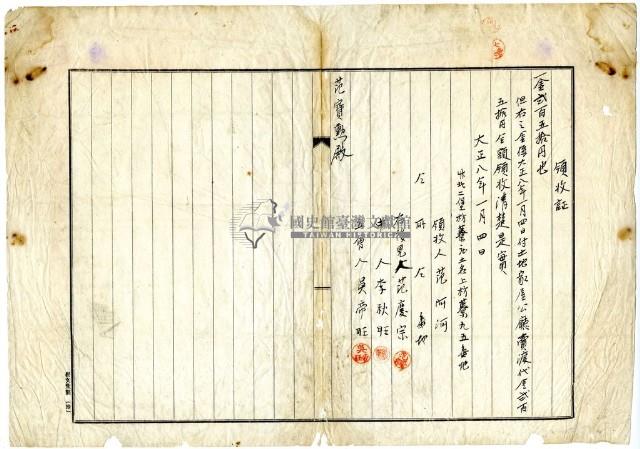 領收証
一金貳百五拾円也
但右之金係大正八年一月四日付土地家屋公廳賣渡代金貳百
五拾円全額領收清楚是實
大正八年一月四日
竹北二堡枋藔庄土名上枋藔九五番地
領收人 范阿河
仝所仝番地
范慶宗
人 李秋旺
立會人 吳帝旺
范寶勲殿
國史館臺灣文獻館
TAIWAN HISTORICA